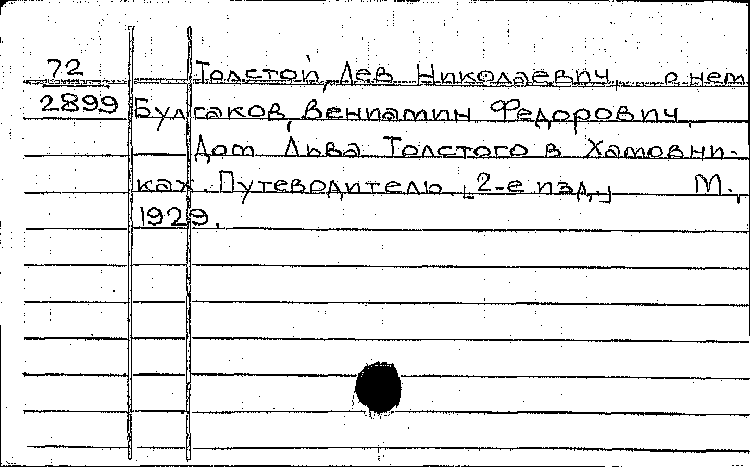 72 Толстой, Лев Николаевич, о нем
2899 Булгаков, Вениамин Федорович.
Дом Льва Толстого в Хамовни-
ках. Путеводитель. [2-е изд.] М.,
1929.